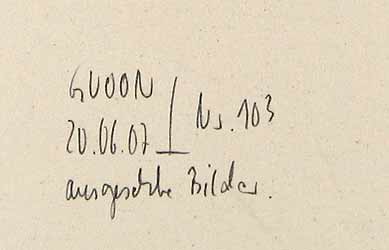 GUOON
20.06.07 | Nr. 103
Bilder.